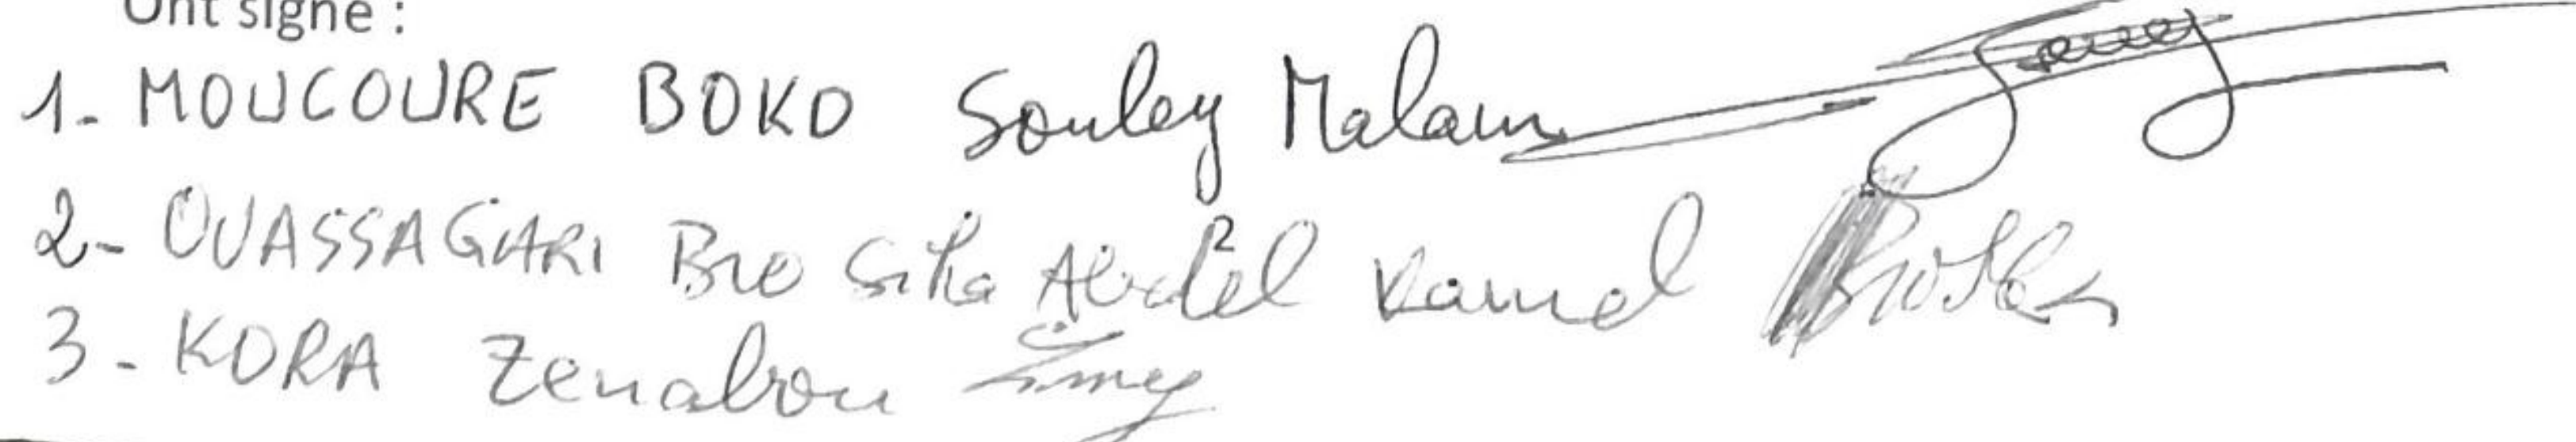 Ont signé :
1- MOUCOURE BOKO Souley Malam
2- OUASSAGARI Bio Sika Abdel Kamel
3- KORA Zenabou